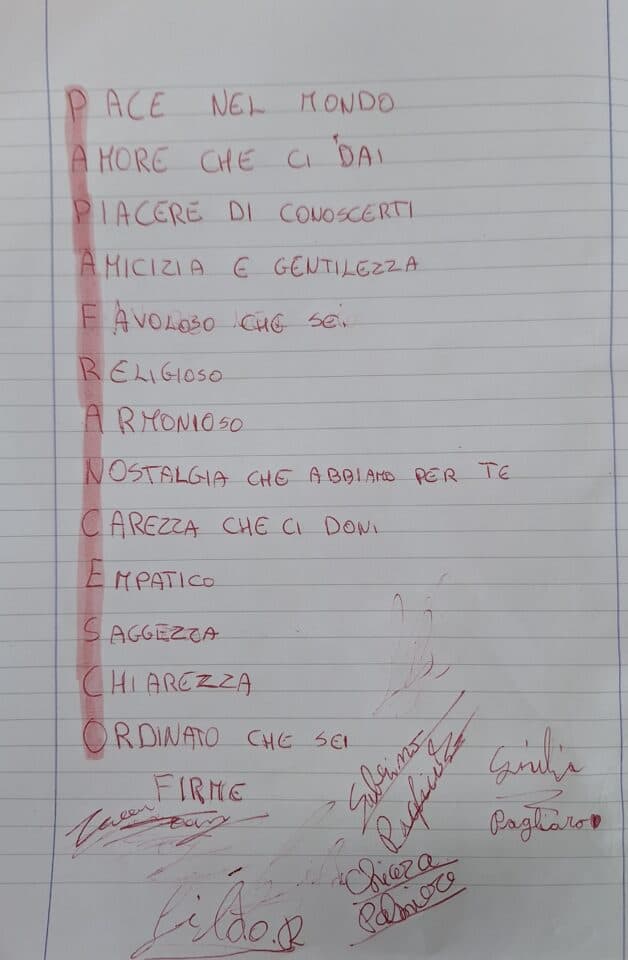 PACE NEL MONDO
AMORE CHE CI DAI
PIACERE DI CONOSCERTI
AMICIZIA E GENTILEZZA
FAVOLOSO CHE SEI.
RELIGIOSO
ARMONIOSO
NOSTALGIA CHE ABBIAMO PER TE
CAREZZA CHE CI DONI
EMPATICO
SAGGEZZA
CHIAREZZA
ORDINATO CHE SEI
FIRME
Giulia
Pagliaro
Chiara
Palmiero
Gildo.R